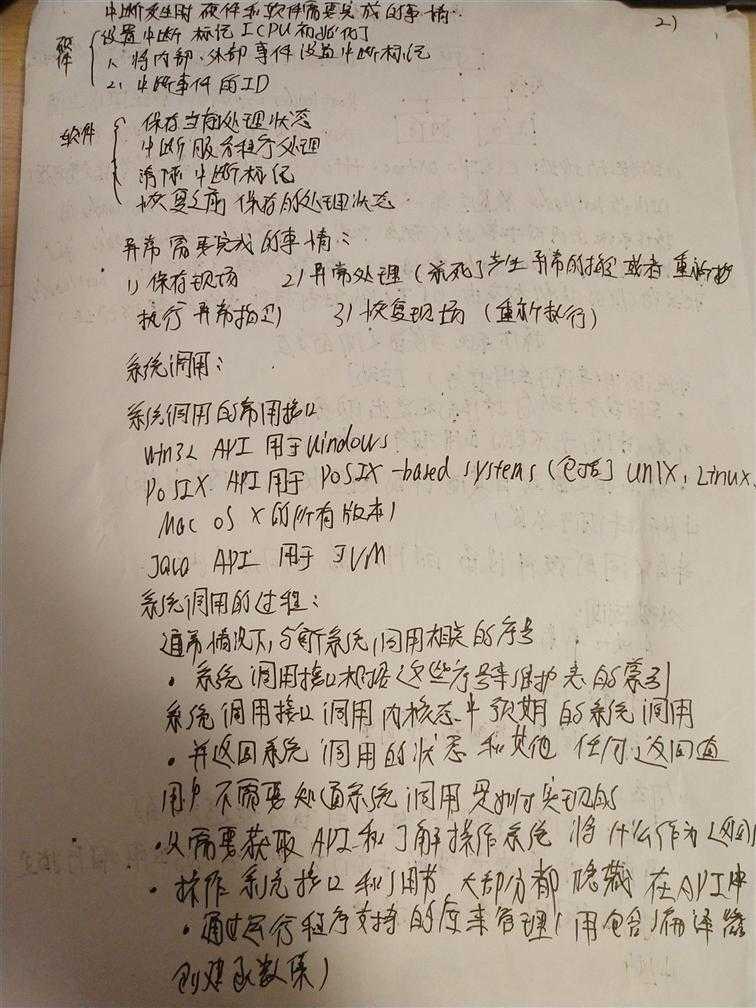 中断发生时硬件和软件需要完成的事情:
2)
硬件 设置中断标记[CPU初始化]
1、将内部、外部事件设置中断标记
2、中断事件的ID
软件 保存当前处理状态
中断服务程序处理
清除中断标记
恢复之前保存的处理状态
异常需要完成的事情:
1) 保存现场 2) 异常处理(杀死了产生异常的程序或者重新
执行异常指令) 3) 恢复现场(重新执行)
系统调用:
系统调用的常用接口
Win32 API 用于Windows
POSIX API 用于 POSIX-based systems(包括 UNIX, Linux,
Mac OS X的所有版本)
Java API 用于 JVM
系统调用的过程:
通常情况下,与系统调用相关的序号
• 系统调用接口根据这些序号来维护表的索引
系统调用接口调用内核态中预期的系统调用
• 并返回系统调用的状态和其他任何返回值
用户不需要知道系统调用是如何实现的
• 只需要获取API和了解操作系统将什么作为返回
• 操作系统接口的细节大部分都隐藏在API中
• 通过运行程序支持的库来管理(用包含编译器
创建函数集)